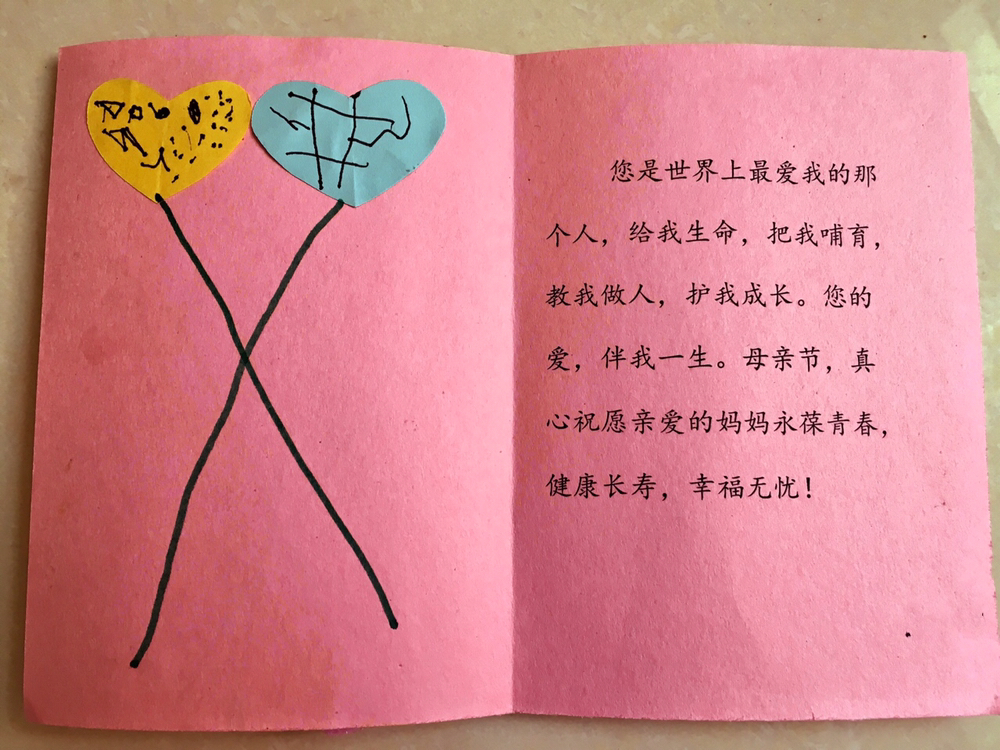 您是世界上最爱我的那
个人，给我生命，把我哺育，
教我做人，护我成长。您的
爱，伴我一生。母亲节，真
心祝愿亲爱的妈妈永葆青春，
健康长寿，幸福无忧！